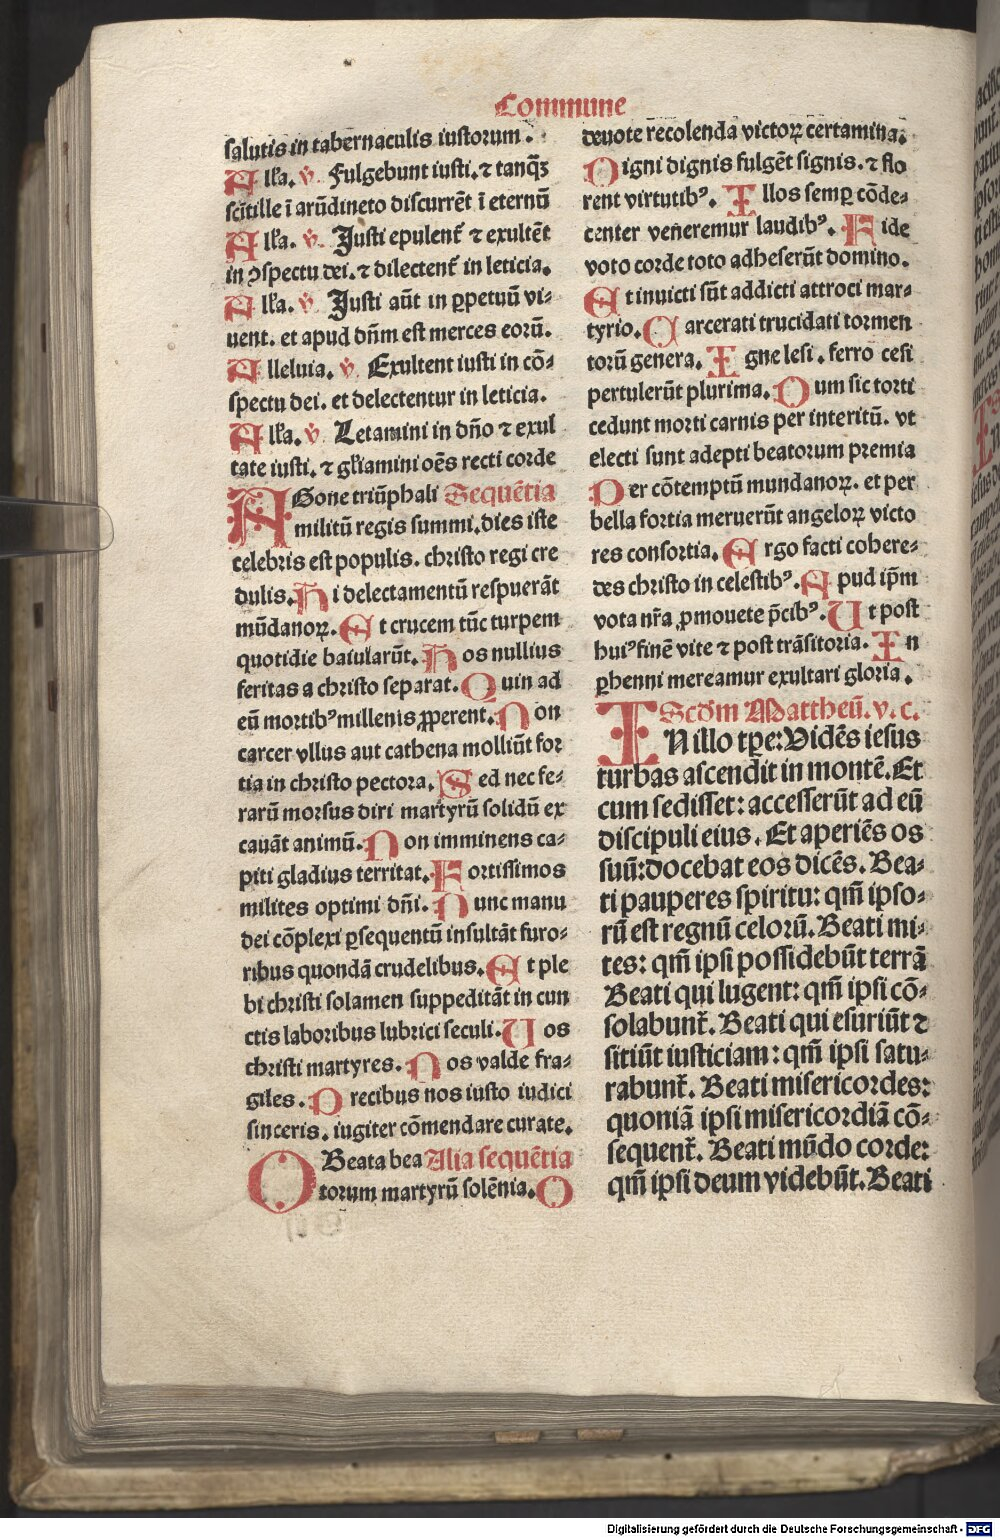 Commune
salutis in tabernaculis iustorum.
Allˀa. ℣. Fulgebunt iusti. ⁊ tanqȝ
scītille ī arūdineto discurrēt ī eternū
Allˀa. ℣. Justi epulent᷑ ⁊ exultēt
in ꝯspectu dei. ⁊ dilectent᷑ in leticia.
Allˀa. ℣. Justi aūt in ꝑpetuū vi-
uent. et apud dn̄m est merces eorū.
Alleluia. ℣. Exultent iusti in cō-
spectu dei. et delectentur in leticia.
Allˀa. ℣. Letamini in dn̄o ⁊ exul
tate iusti. ⁊ gl̄iamini oēs recti corde
AGone triūphali Sequētia
militū regis summi. dies iste
celebris est populis. christo regi cre
dulis. Hi delectamentū respuerāt
mūdanoꝝ. Et crucem tūc turpem
quotidie baiularūt. Hos nullius
feritas a christo separat. Quin ad
eū mortibꝰ millenis ꝓperent. Non
carcer vllus aut cathena molliūt for
tia in christo pectora. Sed nec fe-
rarū morsus diri martyrū solidū ex
cauāt animū. Non imminens ca-
piti gladius territat. Fortissimos
milites optimi dn̄i. Nunc manu
dei cōplexi ꝑsequentū insultāt furo-
ribus quondā crudelibus. Et ple
bi christi solamen suppeditāt in cun
ctis laboribus lubrici seculi. Uos
christi martyres. Nos valde fra-
giles. Precibus nos iusto iudici
sinceris. iugiter cōmendare curate.
O Beata bea Alia sequētia
torum martyrū solēnia. O
deuote recolenda victoꝝ certamina.
Digni dignis fulgēt signis. ⁊ flo
rent virtutibꝰ. Illos semꝑ cōde-
center veneremur laudibꝰ. Fide
voto corde toto adheserūt domino.
Et inuicti sūt addicti attroci mar-
tyrio. Carcerati trucidati tormen
torū genera. Igne lesi. ferro cesi
pertulerūt plurima. Dum sic torti
cedunt morti carnis per interitū. vt
electi sunt adepti beatorum premia
Per cōtemptū mundanoꝝ. et per
bella fortia meruerūt angeloꝝ victo
res consortia. Ergo facti cohere-
des christo in celestibꝰ. Apud ip̄m
vota nr̄a ꝓmouete p̄cibꝰ. Ut post
huiꝰ finē vite ⁊ post trāsitoria. In
ꝑhenni mereamur exultari gloria.
Scd᷑m Mattheū. v. c.
IN illo tꝑe: Vidēs iesus
turbas ascendit in montē. Et
cum sedisset: accesserūt ad eū
discipuli eius. Et aperiēs os
suū: docebat eos dicēs. Bea-
ti pauperes spiritu: qm̄ ipso-
rū est regnū celorū. Beati mi-
tes: qm̄ ipsi possidebūt terrā
Beati qui lugent: qm̄ ipsi cō-
solabunt᷑. Beati qui esuriūt ⁊
sitiūt iusticiam: qm̄ ipsi satu-
rabunt᷑. Beati misericordes:
quoniā ipsi misericordiā cō-
sequent᷑. Beati mūdo corde:
qm̄ ipsi deum videbūt. Beati
Digitalisierung gefördert durch die Deutsche Forschungsgemeinschaft - DFG